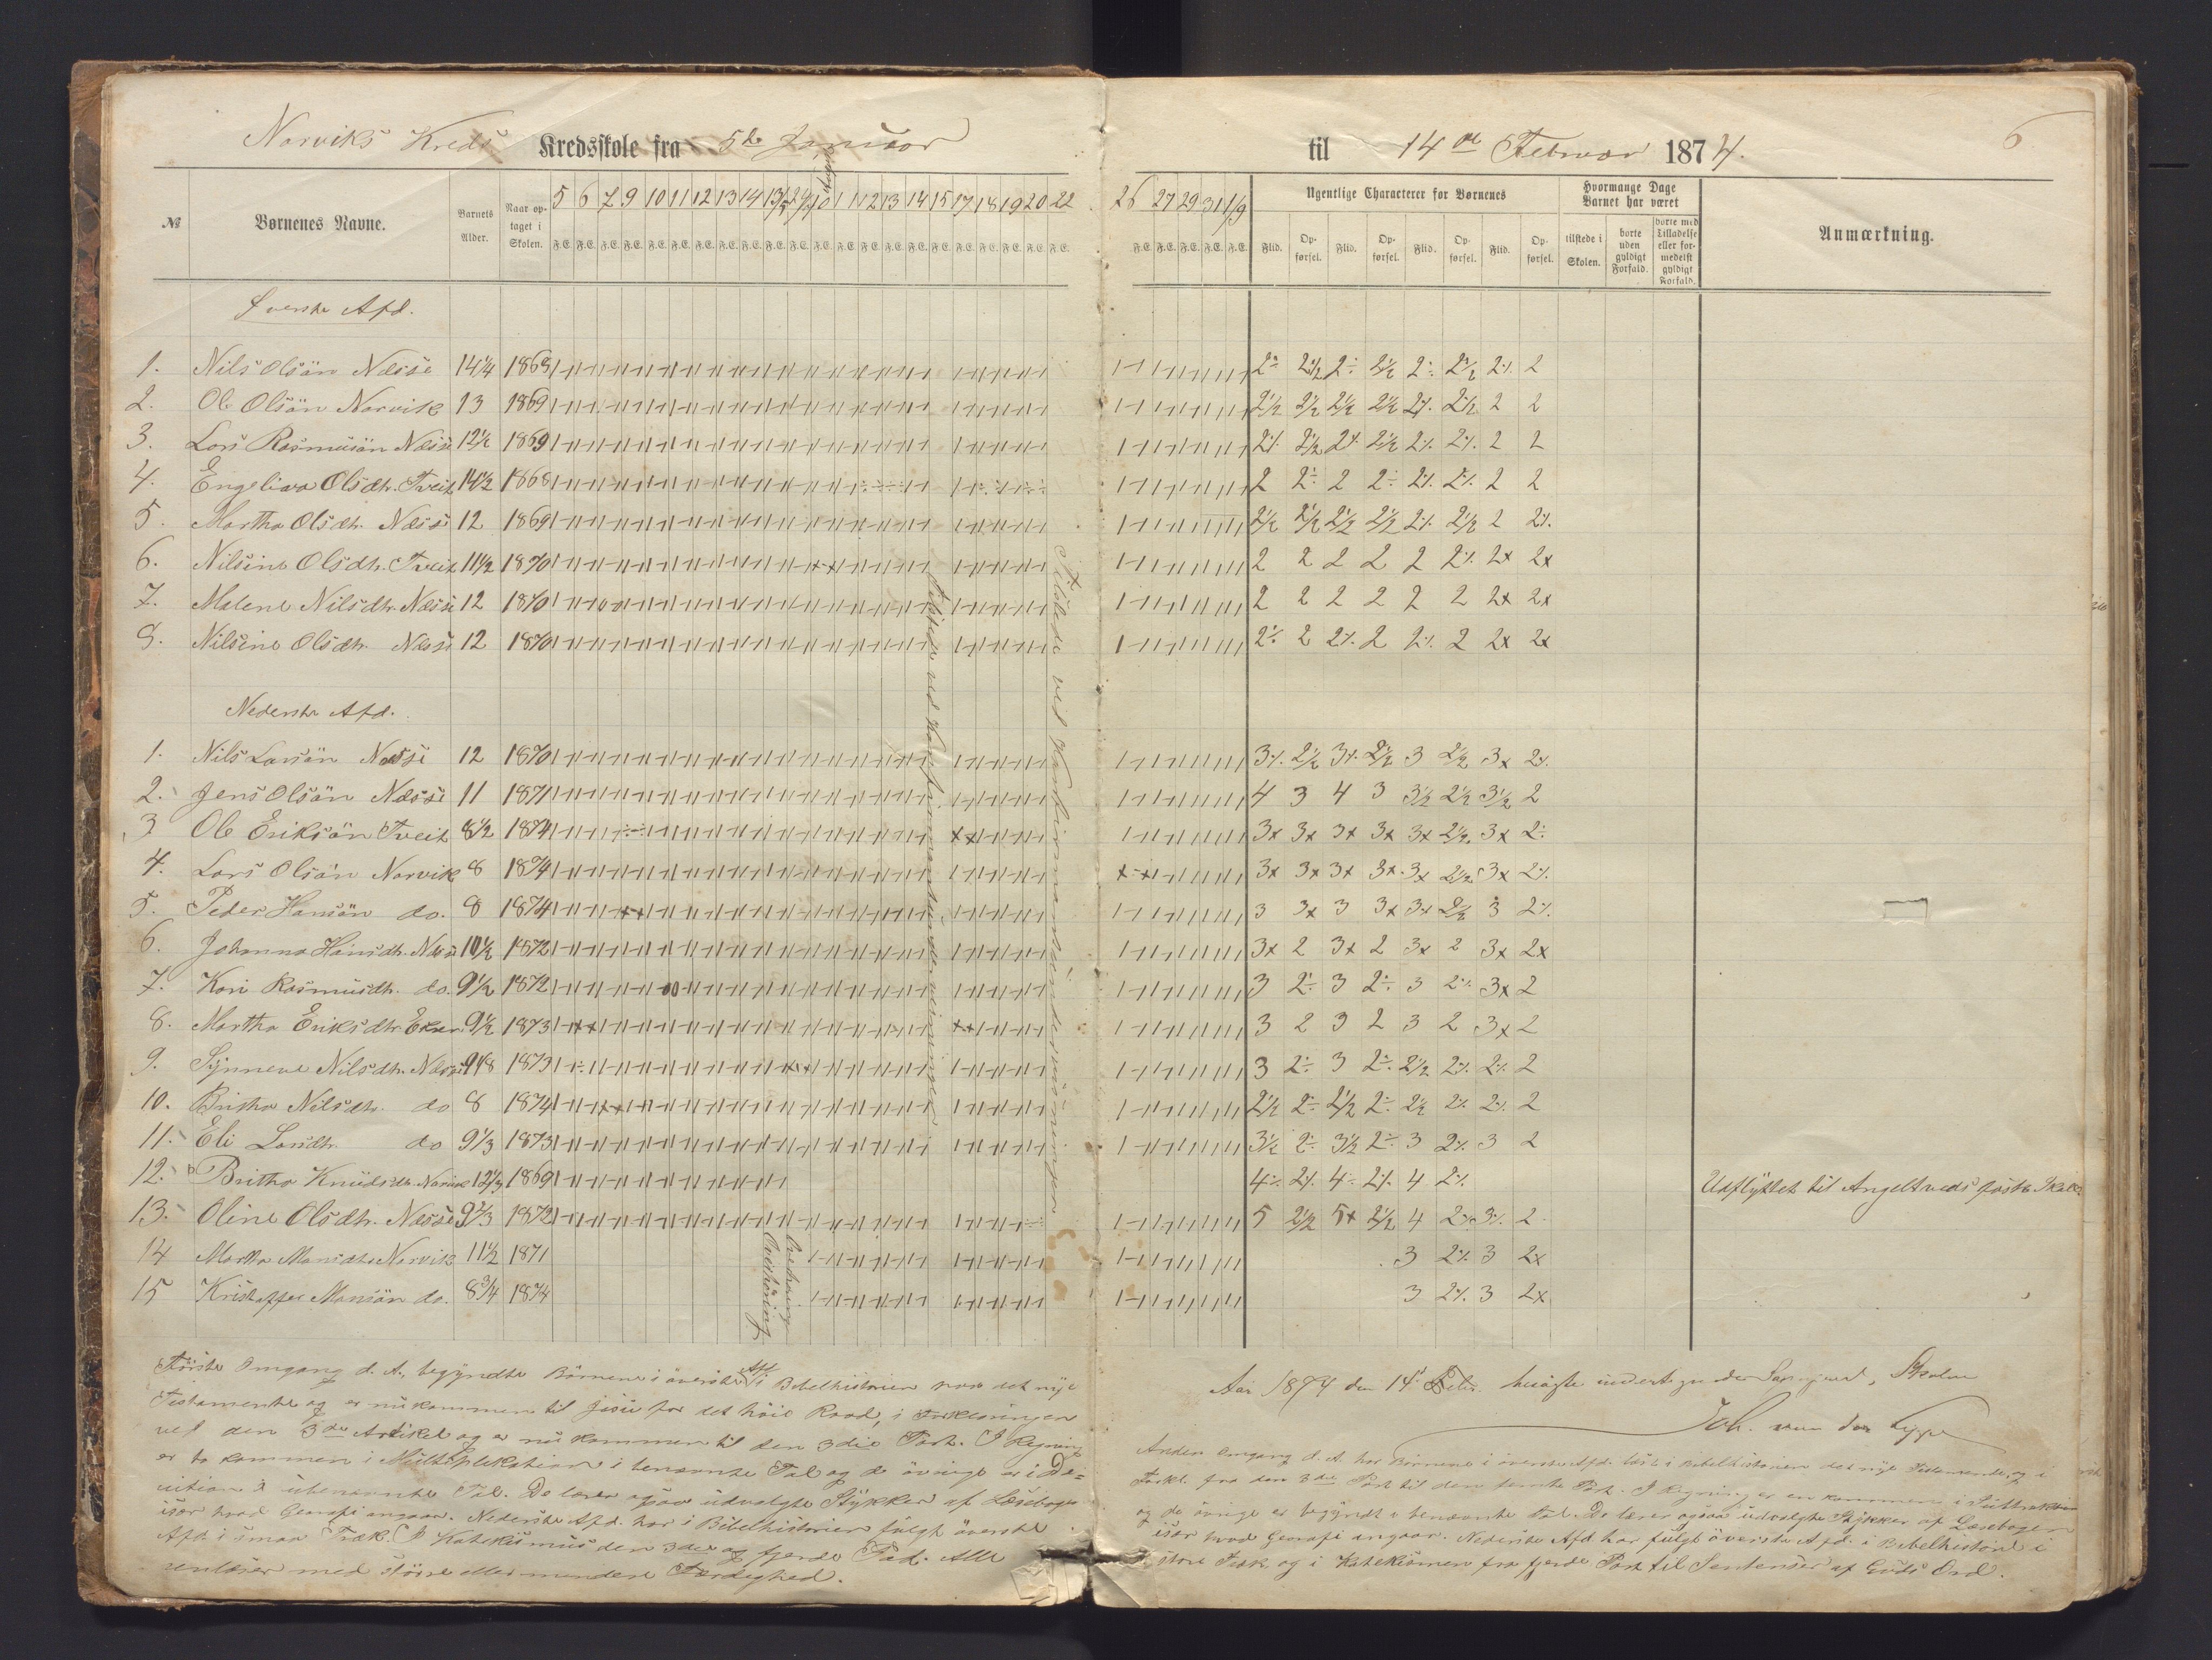 Norviks Kreds Kredsskole fra 5te Januar til 14de Februar 1874.
6
№ Børnenes Navne. Barnets Alder. Naar optaget i Skolen. 5 6 7 9 10 11 12 13 14 10 11 12 13 14 15 17 18 19 20 22 26 27 29 31 1/9
Ugentlige Characterer for Børnenes
Flid. Opførsel. Flid. Opførsel. Flid. Opførsel. Flid. Opførsel.
Hvormange Dage Barnet har været
tilstede i Skolen. borte uden gyldigt Forfald. borte med Tilladelse eller formedelst gyldigt Forfald.
Anmærkning.
Øverste Afd.
1. Nils Olsön Næsse 14 1/4 1868 2÷ 2 1/2 2÷ 2 1/2 2÷ 2 1/2 2% 2
2. Ole Olsön Norvik 13 1869 2 1/2 2 1/2 2 1/2 2 1/2 2% 2 1/2 2 2
3. Lars Rasmusön Næsse 12 1/2 1869 2% 2 1/2 2% 2 1/2 2% 2% 2 2
4. Engelina Olsdtr. Tveit 14 1/2 1868 2 2÷ 2 2÷ 2% 2% 2 2
5. Martha Olsdtr. Næsse 12 1869 2 1/2 2 1/2 2 1/2 2 1/2 2% 2 1/2 2 2%
6. Nilsine Olsdtr. Tveit 11 1/2 1870 2 2 2 2 2 2% 2x 2x
7. Malene Nilsdtr. Næsse 12 1870 2 2 2 2 2 2 2x 2x
8. Nilsine Olsdtr. Næsse 12 1870 2÷ 2 2% 2 2% 2 2x 2x
Nederste Afd.
1. Nils Larsön Næsse 12 1870 3% 2 1/2 3% 2 1/2 3 2 1/2 3x 2%
2. Jens Olsön Næsse 11 1871 4 3 4 3 3 1/2 2 1/2 3 1/2 2
3 Ole Eriksön Tveit 8 1/2 1874 3x 3x 3x 3x 3x 2 1/2 3x 2÷
4. Lars Olsön Norvik 8 1874 3x 3x 3x 3x 3x 2 1/2 3x 2%
5. Peder Hansön do. 8 1874 3 3x 3 3x 3x 2 1/2 3 2%
6. Johanna Hansdtr. Næsse 10 1/2 1872 3x 2 3x 2 3x 2 3x 2x
7. Kari Rasmusdtr. do. 9 1/2 1872 3 2÷ 3 2÷ 3 2% 3x 2
8. Martha Eriksdtr. 9 1/2 1873 3 2 3 2 3 2 3x 2
9. Synneve Nilsdtr. Næsse 9 1/8 1873 3 2÷ 3 2÷ 2 1/2 2% 2% 2
10. Britha Nilsdtr. do 8 1874 2 1/2 2÷ 2 1/2 2÷ 2 1/2 2% 2% 2
11. Eli Larsdtr. do 9 1/3 1873 3 1/2 2÷ 3 1/2 2÷ 3 2% 3 2
12. Britha Knudsdtr. Norvik 12 1/3 1869 4÷ 2% 4÷ 2% 4 2% Udflyttet til Angeltveds faste Skole.
13. Oline Olsdtr. Næsse 9 2/3 1872 5 2 1/2 5x 2 1/2 4 2% 3% 2
14 Martha Mansdtr. Norvik 11 1/2 1871 3 2% 3 2x
15 Kristoffer Mansön do. 8 3/4 1874 3 2% 3 2x
Tilstede ved Konfirmantundervisningen
Tilstede ved Konfirmantundervisningen
Overhöring
Overhöring
Förste Omgang d. A. begyndte Börnene i överste Afd. i Bibelhistorien paa det nye
Testamente og er nu kommen til Jesu for det høie Raad, i Forklaringen
ved den 3de Artikel og er nu kommen til den 3die Part. I Regning
er to kommen i Multiplikation i benævnte Tal og de övrige er i De=
vition i ubenævnte Tal. De lærer ogsaa udvalgte Stykker af Læsebogen
især hvad Geografi angaar. Nederste Afd. har i Bibelhistorien fulgt överste
Afd. i smaa Træk. I Katekismus den 3die og fjerde Part. Alle
renlæser med større eller mindre Færdighed.
Aar 1874 den 14 Febr. besögte undertegnede Skolen
Joh. von der Lippe
Anden Omgang d. A. har Börnene i överste Afd. læst i Bibelhistorien det nye Testamente, og i
Forkl. fra den 3die Part til den femte Part. I Regning er en kommen i Subtraktion
og de övrige er begyndt i benævnte Tal. De lærer ogsaa udvalgte Stykker af Læsebogen
især hvad Geografi angaar. Nederste Afd. har fulgt överste Afd. i Bibelhistorie i
store Træk og i Katekismen fra fjerde Part til Sentenser af Guds Ord.